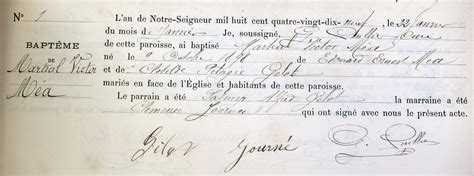 N° 1
L'an de Notre-Seigneur mil huit cent quatre-vingt-dix neuf, le 22 Janvier
du mois de Janvier Je, soussigné, Curé
BAPTÊME
de cette paroisse, ai baptisé Martial Victor Méa
DE
Martial Victor
né le Octobre 1898 de Edouard Ernest Méa
Méa
et de Clotilde Pélagie Gilot
mariés en face de l'Église et habitants de cette paroisse.
Le parrain a été Alfred Gilot La marraine a été
Clémence qui ont signé avec nous le présent acte.
Gilot Journé